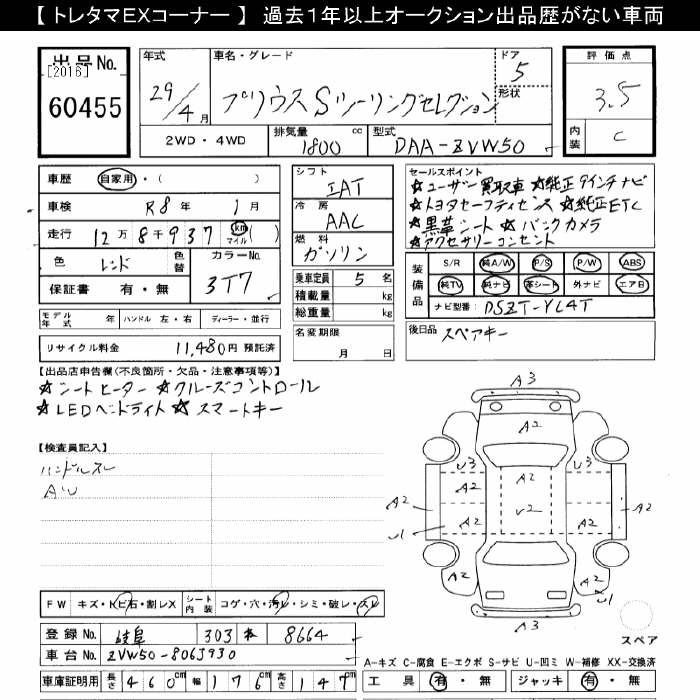 【 トレタマEXコーナー 】 過去１年以上オークション出品歴がない車両
出品No.
[2016]
60455
年式
29/4月
車名・グレード
プリウス Sツーリングセレクション
ドア
5
形状
2WD・4WD
排気量 1800 cc
型式 DAA-ZVW50
評価点
3.5
内装 C
車歴 自家用・( )
車検 R8年 1月
走行 12万8千937 km マイル ( )
色 レッド 色替
カラーNo. 3T7
保証書 有・無
モデル年式 年 ハンドル 左・右 ディーラー・並行
リサイクル料金 11,480円 預託済
シフト
IAT
冷房
AAC
燃料
ガソリン
乗車定員 5 名
積載量 kg
総重量 kg
名変期限
月 日
セールスポイント
☆ユーザー買取車 ☆純正9インチナビ
☆トヨタセーフティセンス ☆純正ETC
☆黒革シート ☆バックカメラ
☆アクセサリーコンセント
装備品
S/R 純A/W P/S P/W ABS
純TV 純ナビ 革シート 外ナビ エアB
ナビ型番( DSZT-YC4T )
後日品 スペアキー
【出品店申告欄(不良箇所・欠品・注意事項等)】
☆シートヒーター ☆クルーズコントロール
☆LEDヘッドライト ☆スマートキー
【検査員記入】
ハンドルスレ
A3
A2
U3 U3
A2 A2
A2 A2
V2
A2 A2
A2 A2
A3
スペア
FW キズ・トビ石・割レX
シート内装 コゲ・穴・汚レ・シミ・破レ・スレ
登録No. 岐阜 303 8664
車台No. ZVW50-8063930
車庫証明用 長さ 460cm 幅 176cm 高さ 147cm
A-キズ C-腐食 E-エクボ S-サビ U-凹ミ W-補修 XX-交換済
工具 有・無 ジャッキ 有・無